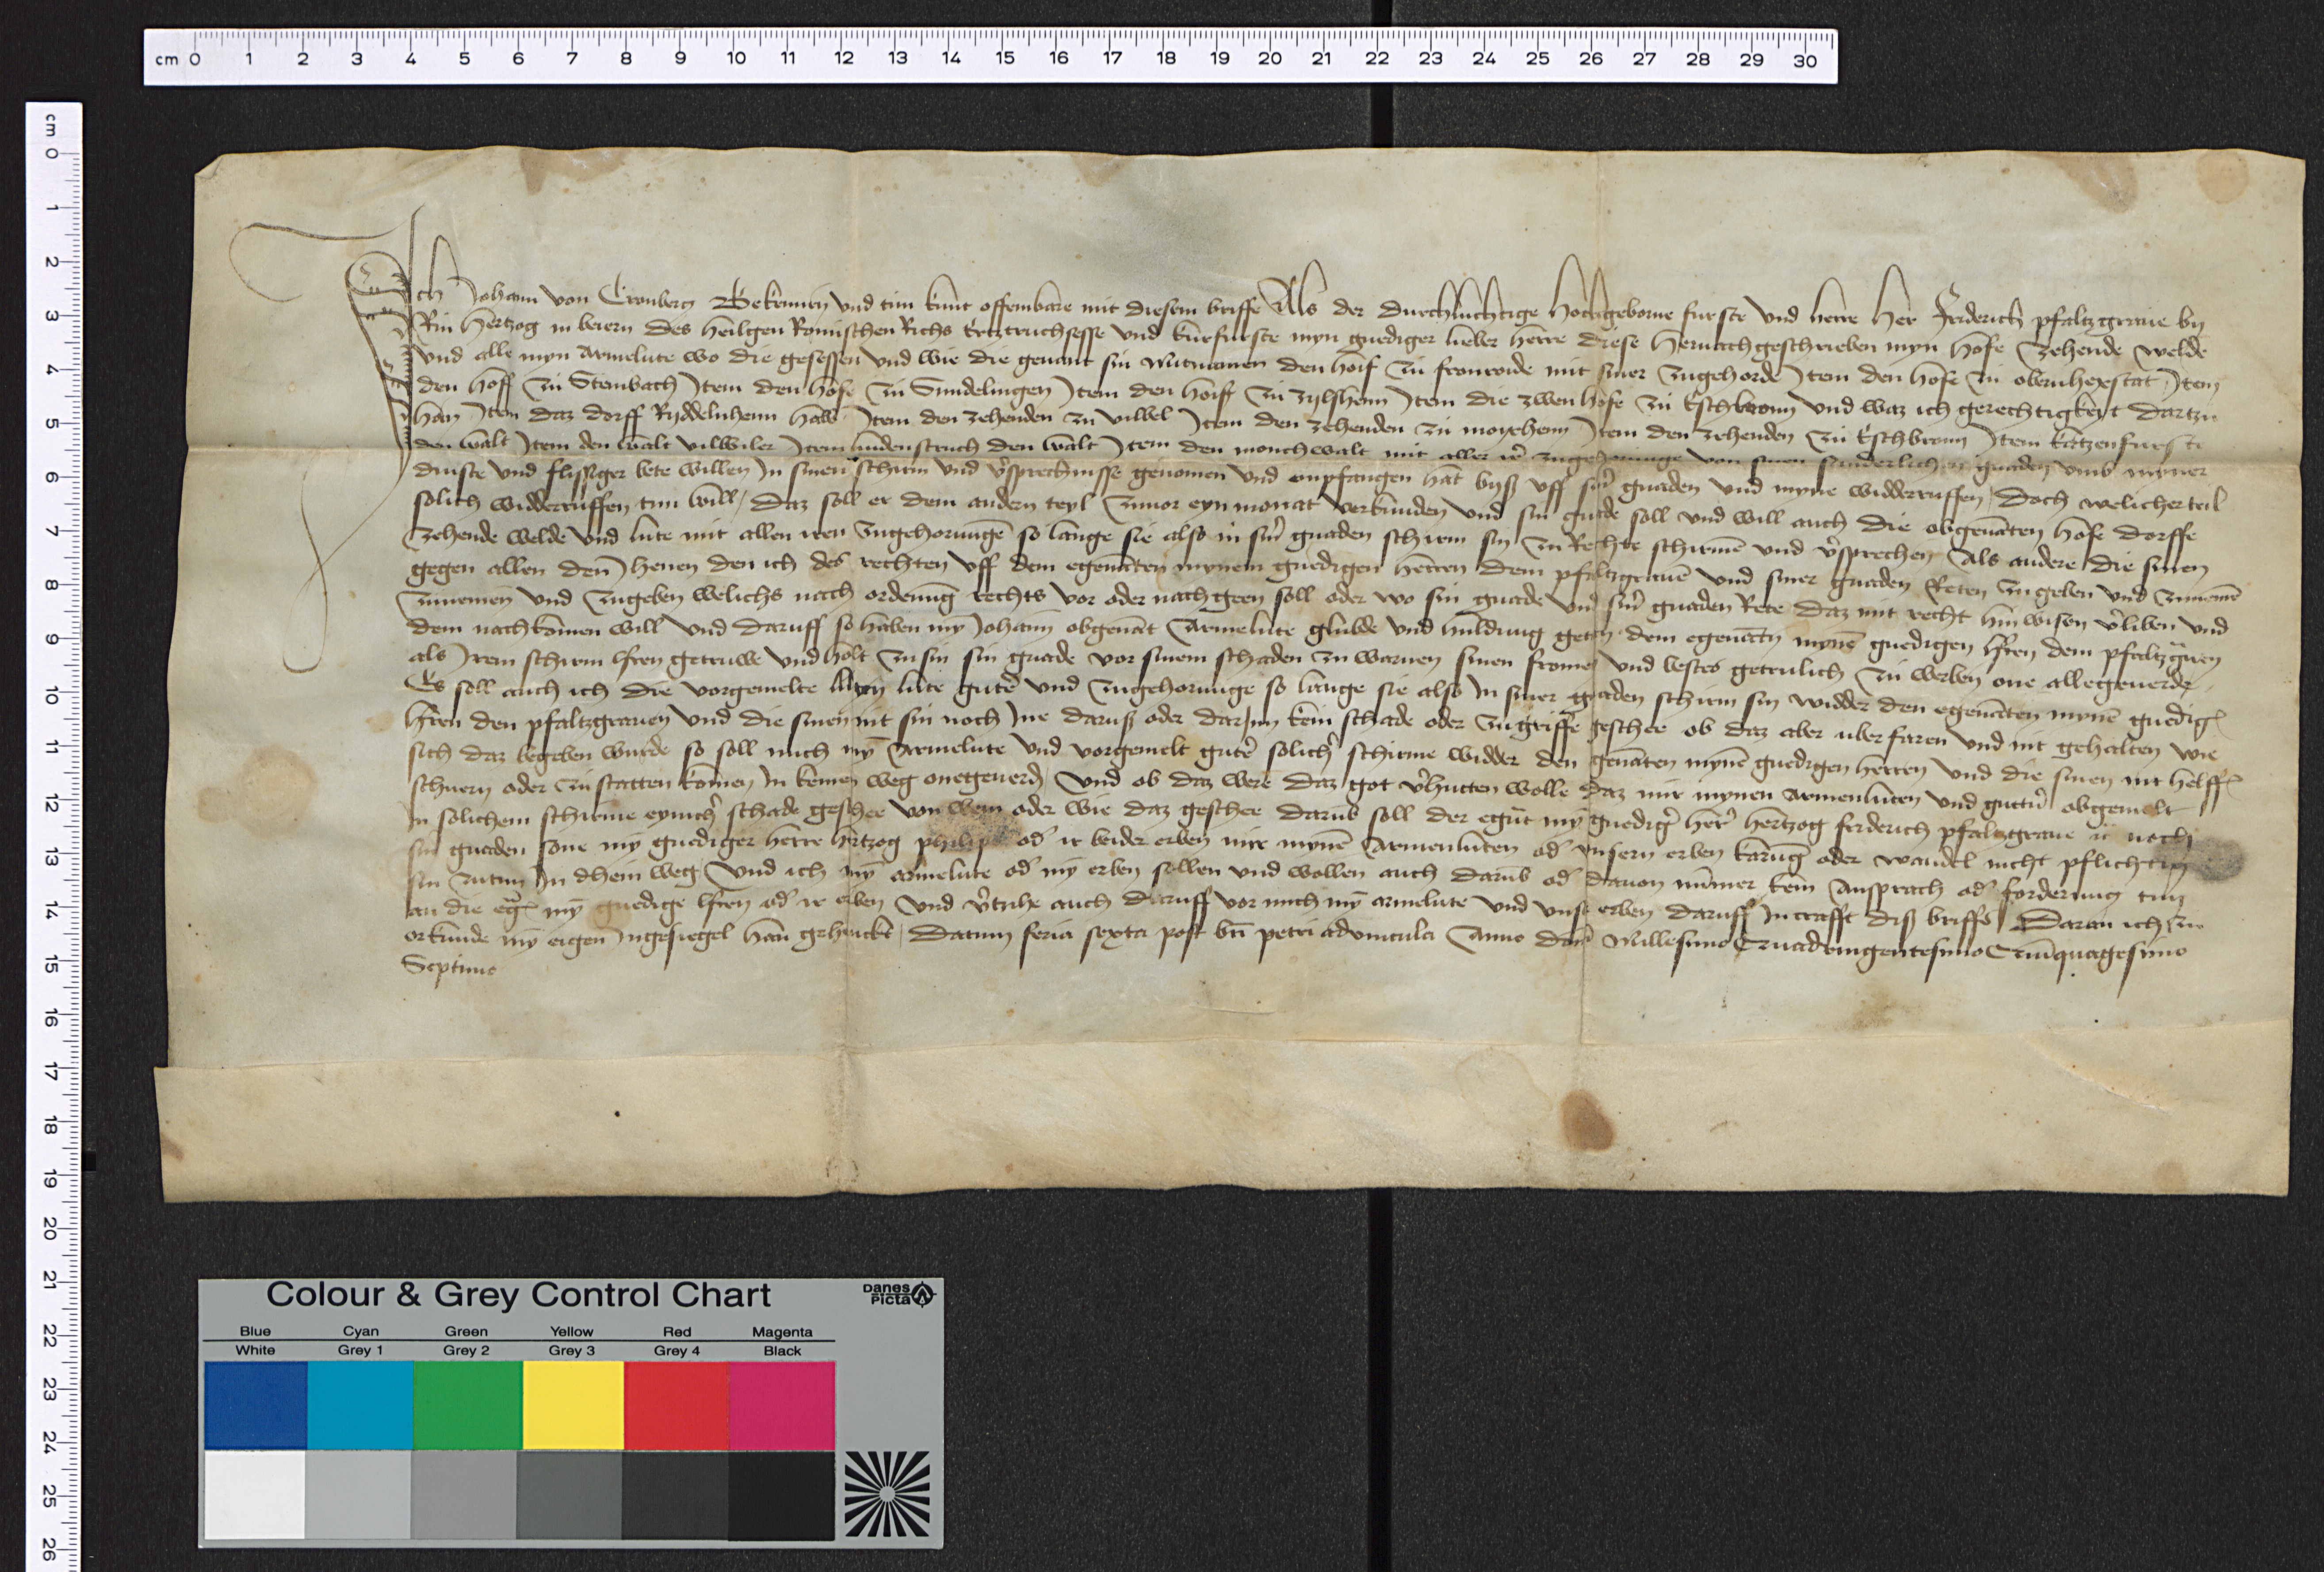 cm 0 1 2 3 4 5 6 7 8 9 10 11 12 13 14 15 16 17 18 19 20 21 22 23 24 25 26 27 28 29 30
cm 0 1 2 3 4 5 6 7 8 9 10 11 12 13 14 15 16 17 18 19 20 21 22 23 24 25 26
Ich Johann von Cronberg Bekennen und tun kunt offembare mit diesem brieffe Als der durchluchtige hochgeborne furste und herre her Friderich pfaltzgraue by
Rin hertzog in beiern des heilgen Romischen Richs Ertztruchsesse und kurfurste myn gnediger lieber herre diese hernachgeschrieben myn hofe zehende welde
und alle myn armelute wo die gesessen und wie die genant sin mit namen den hoif zu fronrode mit siner zugehorde Item den hofe zu obernhexstat Item
den hoff zu Steinbach Item den hofe zu Sundelingen Item den hoiff zu zylßheim Item die zwen hofe zu Eschborn und waz ich gerechtigkeyt dartzu
han Item daz dorff Ryddelnheim halb Item den zehenden zu vilwel Item den zehenden zu moxheim Item den zehenden zu Eschbronn Item katzenfurste
den walt Item den walt vilwiler Item lindenstruch den walt Item den monchewalt mit aller ir zugehorunge von sinen sunderlichen gnaden umb myner
dinste und flissiger bete willen In sinen schirm und v̓sprechnisse genomen und enpfangen hat byß uff sin̓ gnaden und myne widderruffen Doch welicher teil
solich widderruffen tun will / daz soll er dem andern teyl zuuor eyn monat verkunden und sin gnade soll und will auch die obgenanten hofe dorffe
zehende welde und lute mit allen iren zugehorungē so lange sie also in sin̓ gnaden schirm sin zu Rechte schirmē und v̓sprechen Als andere die sinen
gegen allen den Jhenen den ich des rechten uff dem egenāten mynem gnedigen herren dem pfaltzgrauē und siner gnaden Reten zu geben und zunemē
zunemen und zugeben welichs nach ordenūg rechts vor oder nachgeen soll oder wo sin gnade und sin̓ gnaden Rete daz mit recht hin wisen v̓liben und
dem nachkomen will und daruff so haben my Johann obgenāt armelute glubde und huldung getan dem egenātē mynē gnedigen h̓ren dem pfaltzg̓uen
als Irem schirm h̓ren getruwe und holt zu sin sin gnade vor sinem schaden zu warnen sinen fromen und bestes getrulich zu werben one allegeuerde
Es soll auch ich die vorgemelte myn lute gute̓ und zugehorunge so lange sie also In siner gnaden schirm sin widder den egenāten mynē gnediḡ
h̓ren den pfaltzgrauen und die sinen nit sin noch Ine daruß oder dar Inn kein schade oder zugriffe geschee ob daz aber uberfaren und nit gehalten wie
sich daz begeben wurde so soll mich my̅ armelute und vorgemelt gute̓ solich̓ schirme widder den genāten mynē gnedigen herren und die sinen nit helffē
schuern oder zu statten komen In keinen weg one geuerde Und ob daz were daz got v̓hutten wolle daz mir mynen armenluten und guttn̓ obgemelt
In solichem schirme eynich̓ schade geschee von wem oder wie daz geschee darub soll der egn̄t my gnedig̓ her̓ hertzog friderich pfaltzgraue ꝛc noch
sin gnaden sone my gnediger herre hertzog philips od̓ ir beider erben mir mynē armenluten od̓ unsern erben karūg oder wandel nicht pflichtig
sin zutun In dhein weg Und ich my̅ armelute od̓ my erben sollen und wollen auch darub od̓ dauon nūmer kein ansprach od̓ forderung tun
an die eḡ my̅ gnedige h̓ren od̓ ir erben Und v̓tzihe auch daruff vor mich my̅ armelute und unse erben daruff In crafft diß brieffs Daran ich zu
orkunde my̅ eigen Ingesiegel han gehenckt / Datum feria sexta post bn̄ petri advincula Anno dn̄i Millesimo Quadringentesimo Quīquagesimo
Septimo
Colour & Grey Control Chart
Danes Picta
Blue Cyan Green Yellow Red Magenta
White Grey 1 Grey 2 Grey 3 Grey 4 Black